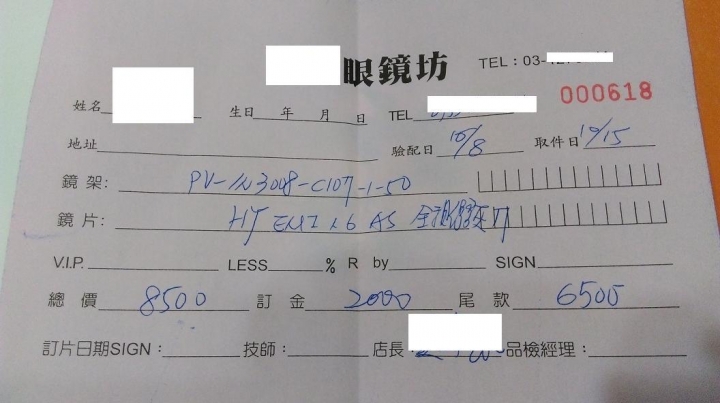 眼鏡坊 TEL：03-
000618
姓名 生日 年 月 日 TEL
地址 驗配日 10/8 取件日 10/15
鏡架：PV-IN3008-C107-1-50
鏡片：HT EMI 1.6 AS
V.I.P. LESS % R by SIGN
總價 8500 訂金 2000 尾款 6500
訂片日期SIGN： 技師： 店長： 品檢經理：